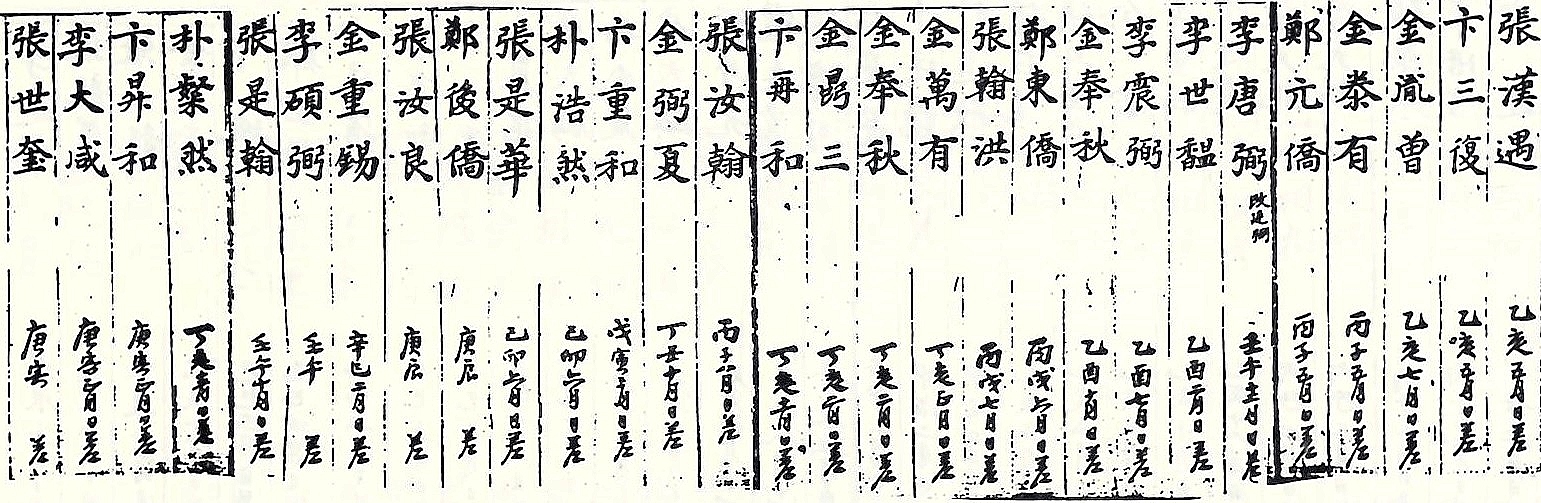 張漢遇 乙亥五月日差
卞三復 乙亥五月日差
金胤曾 乙亥七月日差
金泰有 丙子五月日差
鄭元僑 丙子五月日差
李唐弼 改廷弼 壬午 月日差
李世馧 乙酉二月日差
李震弼 乙酉七月日差
金奉秋 乙酉 月日差
鄭東僑 丙戌六月日差
張翰洪 丙戌七月日差
金萬有 丁亥正月日差
金奉秋 丁亥二月日差
金 三 丁亥二月日差
卞再和 丁亥 月日差
張汝翰 丙子八月日差
金弼夏 丁丑十月日差
卞重和 戊寅 月日差
朴浩然 己卯六月日差
張是華 己卯六月日差
鄭後僑 庚辰 差
張汝良 庚辰 差
金重錫 辛巳二月日差
李碩弼 壬午 差
張是翰 壬午 月日差
朴粲然 丁亥 月日差
卞昇和 庚寅正月日差
李大咸 庚寅正月日差
張世奎 庚寅 差